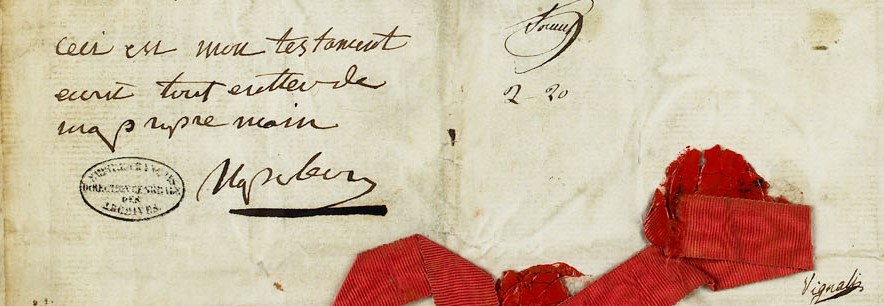 ceci est mon testament
ecrit tout entier de
ma propre main
Napoleon
2 - 20
EMPIRE FRANÇAIS
DIRECTION GENERALE
DES
ARCHIVES
Vignali